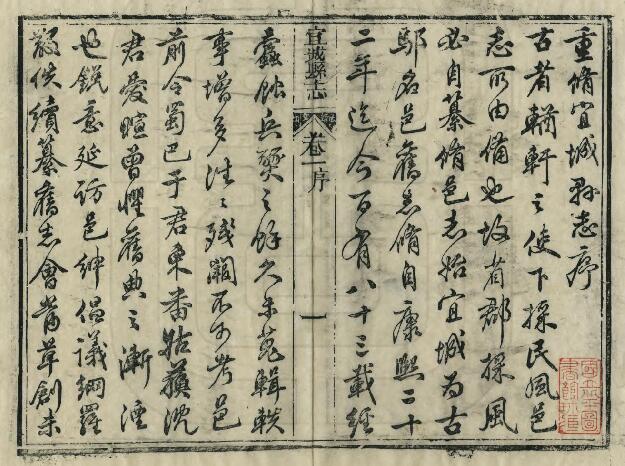 重脩宜城縣志序
古者輶軒之使下採民風邑
志所由備也故省郡採風
必自纂脩邑志始宜城為古
鄢名邑舊志脩自康熙二十
二年迄今百有八十三載經
宜城縣志
卷一序
一
蠹蝕兵燹之餘久未蒐輯軼
事增多往々殘闕不可考邑
前令蜀巴子君東番姑蘓沈
君愛暄曾懼舊典之漸湮
也銳意延訪邑紳倡議綱羅
散佚續纂舊志會當草創未